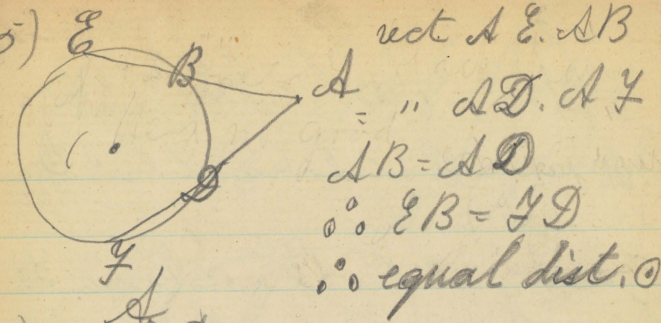 5)
E
B
A
D
F
A
rect AE.AB
= " AD.AF
AB = AD
∴ EB = FD
∴ equal dist. ⊙